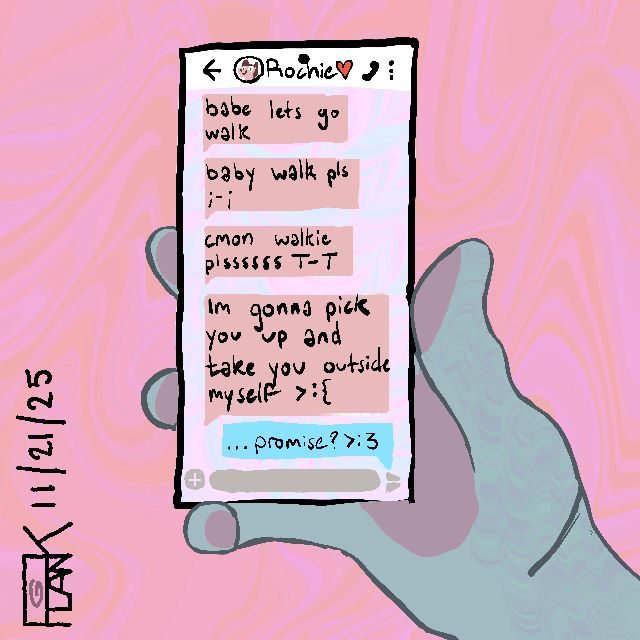 Rochie
babe lets go
walk
baby walk pls
;-;
cmon walkie
plssssss T-T
Im gonna pick
you up and
take you outside
myself >:{
...promise? >:3
11/21/25